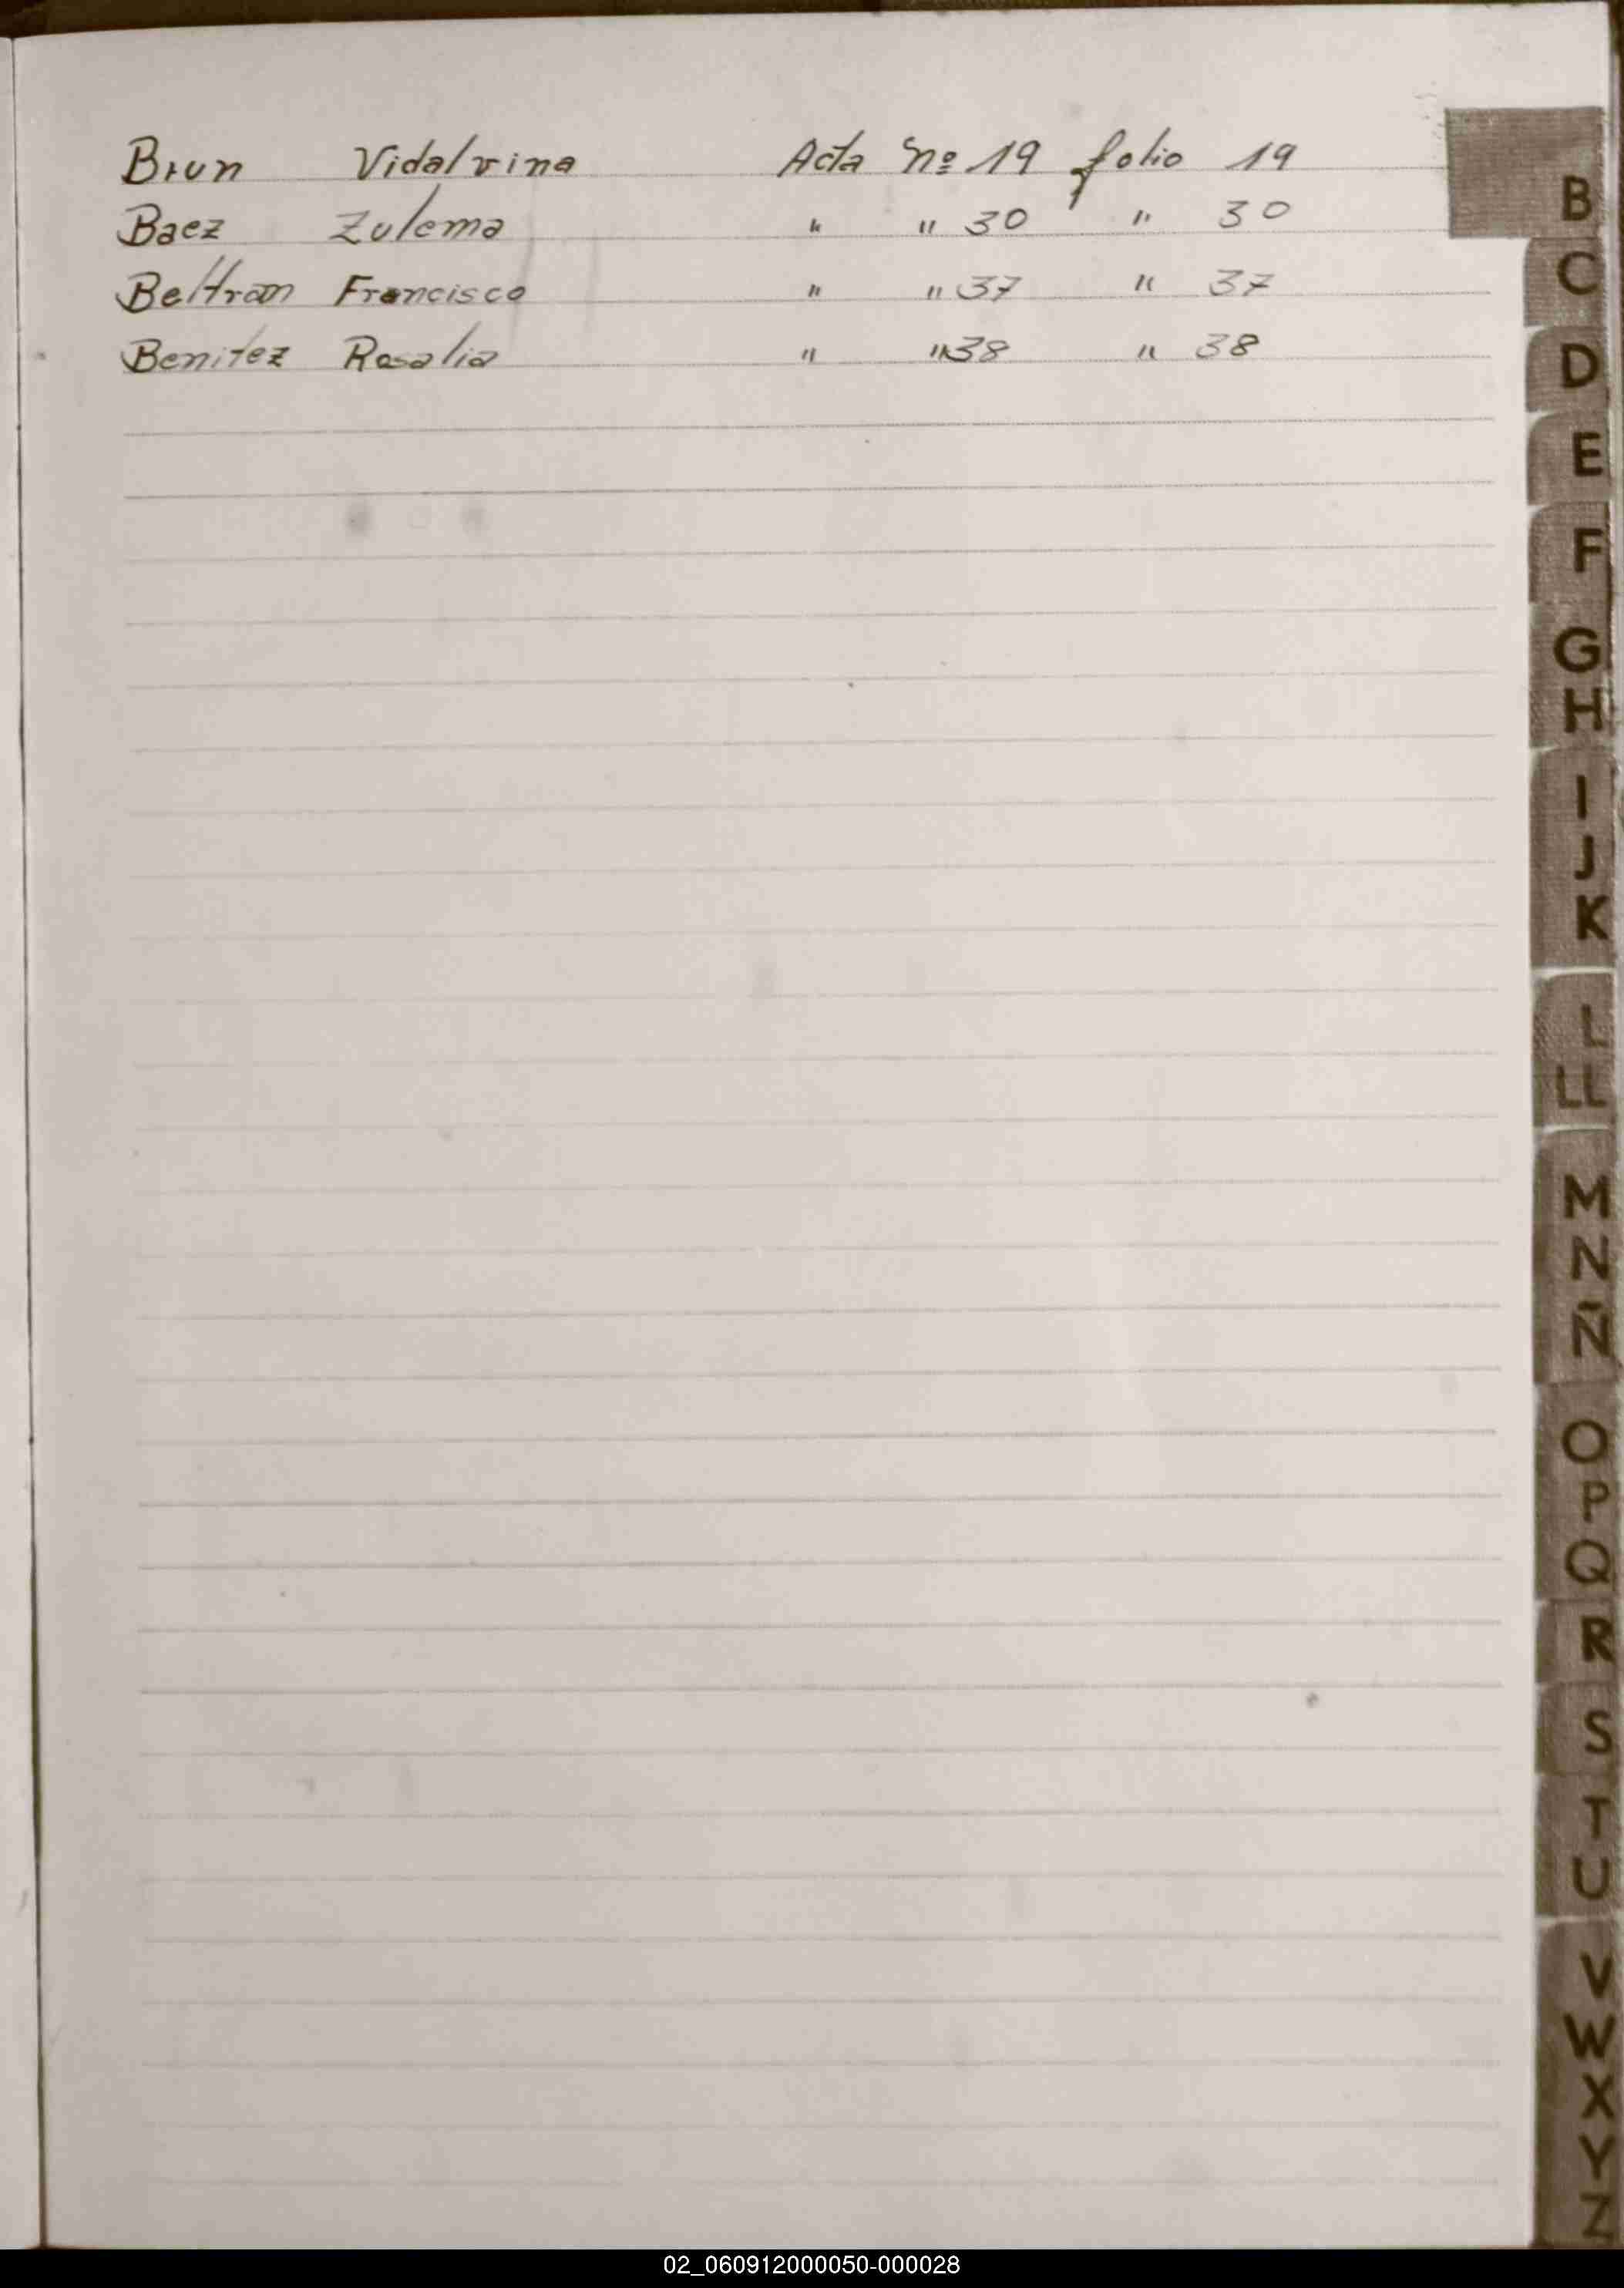 Brun Vidalvina Acta Nº 19 folio 19
Baez Zulema " " 30 " 30
Beltran Francisco " " 37 " 37
Benitez Rosalia " " 38 " 38
B
C
D
E
F
G
H
I
J
K
L
LL
M
N
Ñ
O
P
Q
R
S
T
U
V
W
X
Y
Z
02_060912000050-000028